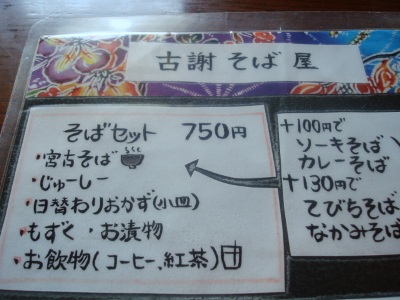 古謝そば屋
そばセット 750円
・宮古そば
・じゅーしー
・日替わりおかず(小皿)
・もずく・お漬物
・お飲物(コーヒー、紅茶)
+100円で
ソーキそば
カレーそば
+130円で
てびちそば
なかみそば